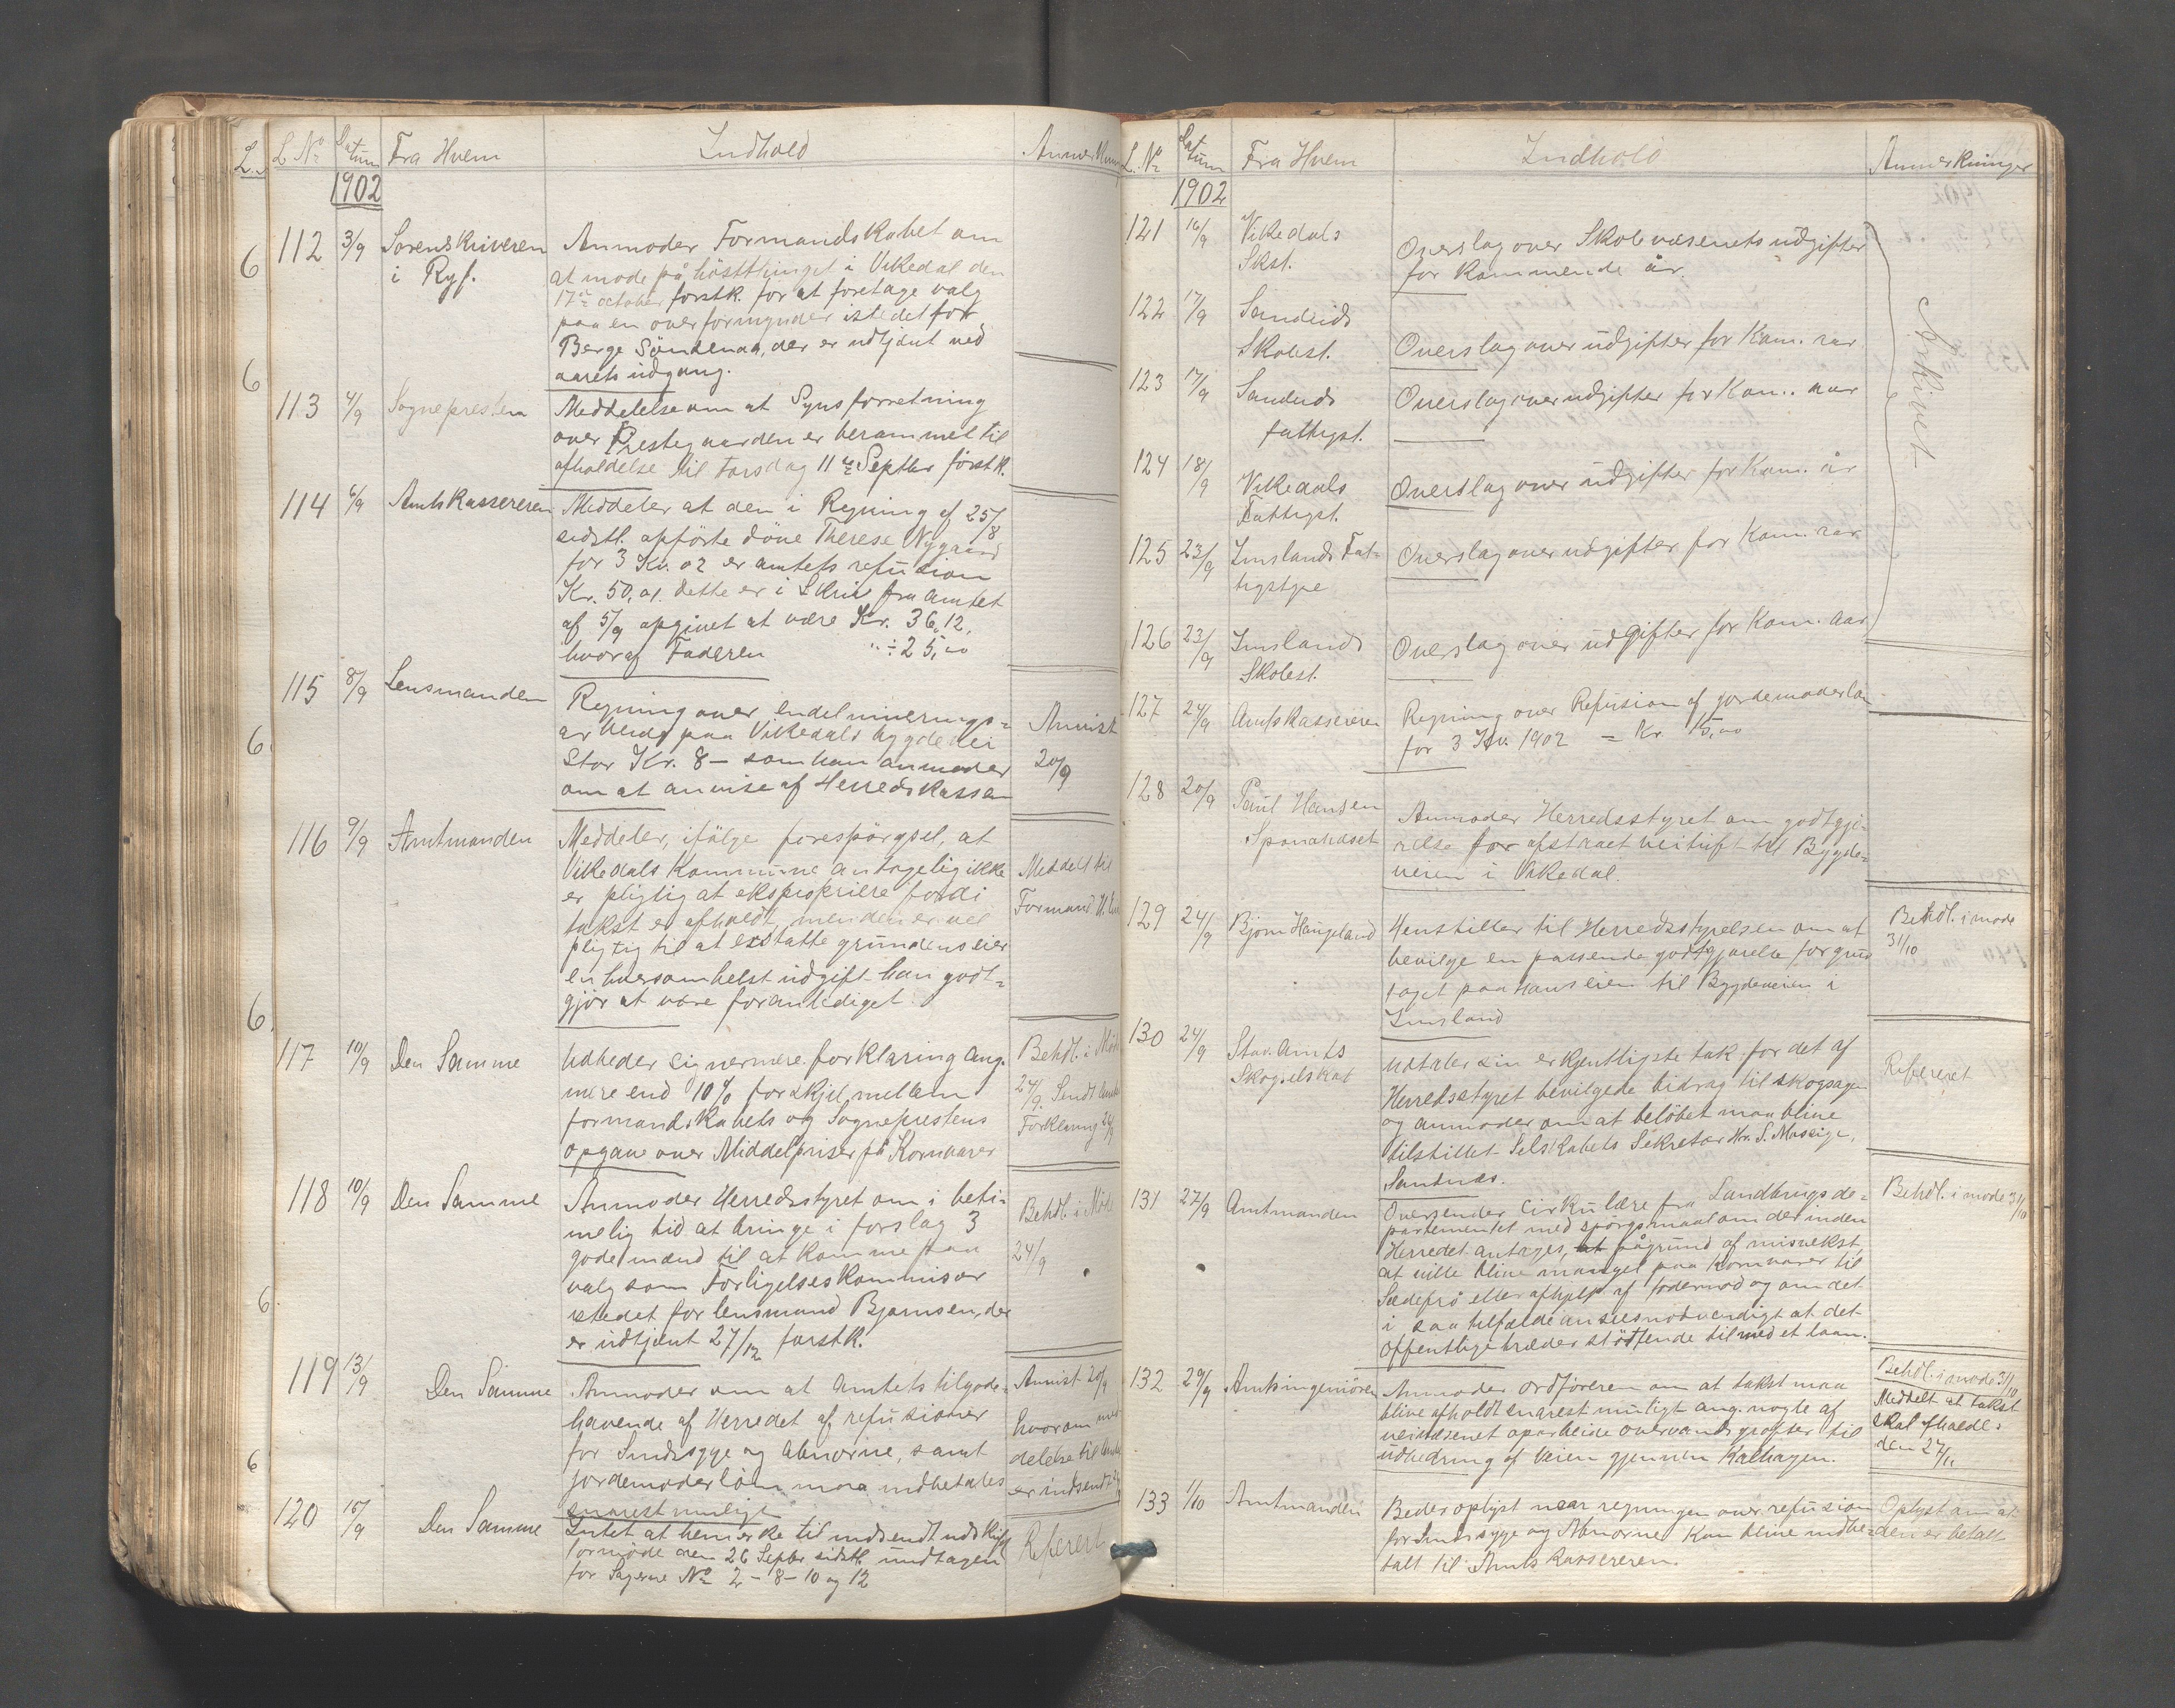 L. No Datum Fra Hvem Indhold
1902
112 3/9 Sorenskriveren
i Ryf.
Anmoder Formandskabet om
at møde på hösttinget i Vikedal den
17de october förstk. for at foretage valg
paa en overformynder istedetfor
Berge Söndenaa, der er udtjent ved
aarets udgang.
113 4/9 Sognepresten
Meddelelse om at Synsforretning
over Prestegaarden er berammet til
afholdelse til Torsdag 11te Septbr förstk.
114 6/9 Amtskassereren
Meddeler at den i Regning af 25/8
sidstl. opförte döve Therese Nygaard
for 3 Kv. 02 er amtets refusion
Kr. 50,01. Dette er i Skriv fra Amtet
af 5/9 opgivet at være Kr. 36,12,
hvoraf Faderen " ÷ 25,00
115 8/9 Lensmanden
Regning over
arbeide paa Vikedals bygdevei
Stor Kr. 8 – som han anmoder
om at anvise af Herredskassen
Anvist
20/9
116 9/9 Amtmanden
Meddeler, ifölge forespörgsel, at
Vikedals Kommune antagelig ikke
er pligtig at ekspropriere fordi
takst er afholdt, men den er vel
pligtig til at erstatte grundens eier
en hversomhelst udgift han godt-
gjör at være foranlediget.
Meddelt til
Formand
117 10/9 Den Samme
Udbeder sig nærmere forklaring ang.
mere end 10% forskjel mellem
formandskabets og Sogneprestens
opgave over Middelpriser på Kornvarer
Behdl. i Möde
24/9. Sendt
Forklaring 24/9
118 10/9 Den Samme
Anmoder Herredsstyret om i beti-
melig tid at bringe i forslag 3
gode mænd til at komme paa
valg som Forligelseskommisær
istedet for lensmand Bjørnsen, der
er udtjent 27/12 førstk.
Behdl. i Möde
24/9
119 13/9 Den Samme
Anmoder om at Amtets tilgode-
havende af Herredet af refusioner
for Sindssyge og Abnorme, samt
jordemoderlön maa indbetales
snarest muligt
Anvist 20/9
hvorom med-
delelse til
er indsendt
120 15/9 Den Samme
Intet at bemerke til indsendt udskrift
formöde den 26 Septbr sidstl. undtagen
for Sagerne No 2 – 8 – 10 og 12
Refereret
L. No Datum Fra Hvem Indhold Anmerkninger
1902
121 16/9 Vikedals
Skst.
Overslag over Skolevæsenets udgifter
for kommende år.
122 17/9 Sandeids
Skolest.
Overslag over udgifter for Kom. aar
123 17/9 Sandeids
fattigst.
Overslag over udgifter for Kom. aar
124 18/9 Vikedals
Fattigst.
Overslag over udgifter for Kom. år
125 23/9 Imslands Fat-
tigstyre
Overslag over udgifter for Kom. aar
126 23/9 Imslands
Skolest.
Overslag over udgifter for Kom. aar
Arkivet
127 24/9 Amtskassereren
Regning over Refusion af jordemoderlön
for 3 Kv. 1902 = Kr. 15,00
128 20/9 Paul Hansen
Anmoder Herredsstyret om godtgjö-
relse for afstaaet veituft til Bygde-
veien i Vikedal.
129 24/9 Bjørn Haugeland
Henstiller til Herredsstyrelsen om at
bevilge en passende godtgjørelse for grus
taget paa hans eien til Bygdeveien i
Imsland
Behdl. i møde
31/10
130 24/9 Stav. Amts
Skogselskab
Udtaler sin erkjentligste tak for det af
Herredsstyret bevilgede bidrag til skogsagen
og anmoder om at belöbet maa blive
tilstillet Selskabets Sekretær Hr. S. Mossige,
Sandnæs.
Refereret
131 27/9 Amtmanden
Oversender Cirkulære fra Landbrugsde-
partementet med spörgsmaal om der inden
Herredet antages, at på grund af misvekst
at ville blive mangel paa kornvarer til
Sædefrö eller afhjelp af fodernød og om det
i saa tilfælde ansees nødvendigt at det
offentlige træder støttende til med et laan.
Behdl. i møde 31/10
132 29/9 Amtsingeniören
Anmoder ordføreren om at takst maa
blive afholdt snarest muligt ang. nogle af
veivæsenet oparbeide overvandsgrøfter til
udbedring af Veien gjennem Kalhagen.
Behdl. i møde 31/10
Meddelt at takst
skal afholdes
den 27/11
133 1/10 Amtmanden
Beder oplyst naar regningen over refusion
for Sindssyge og Abnorme Kan blive indbe-
talt til Amtskassereren.
Oplyst om at
den er betalt